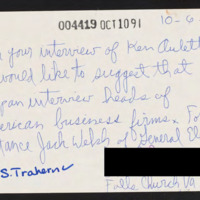 004419 OCT1091
10-6
your interview of Ken Aulett
would like to suggest that
pan interview heads of
erican business firms. Fo
tance Jack Welsh of General El
S. Traherne
Falls Church Va